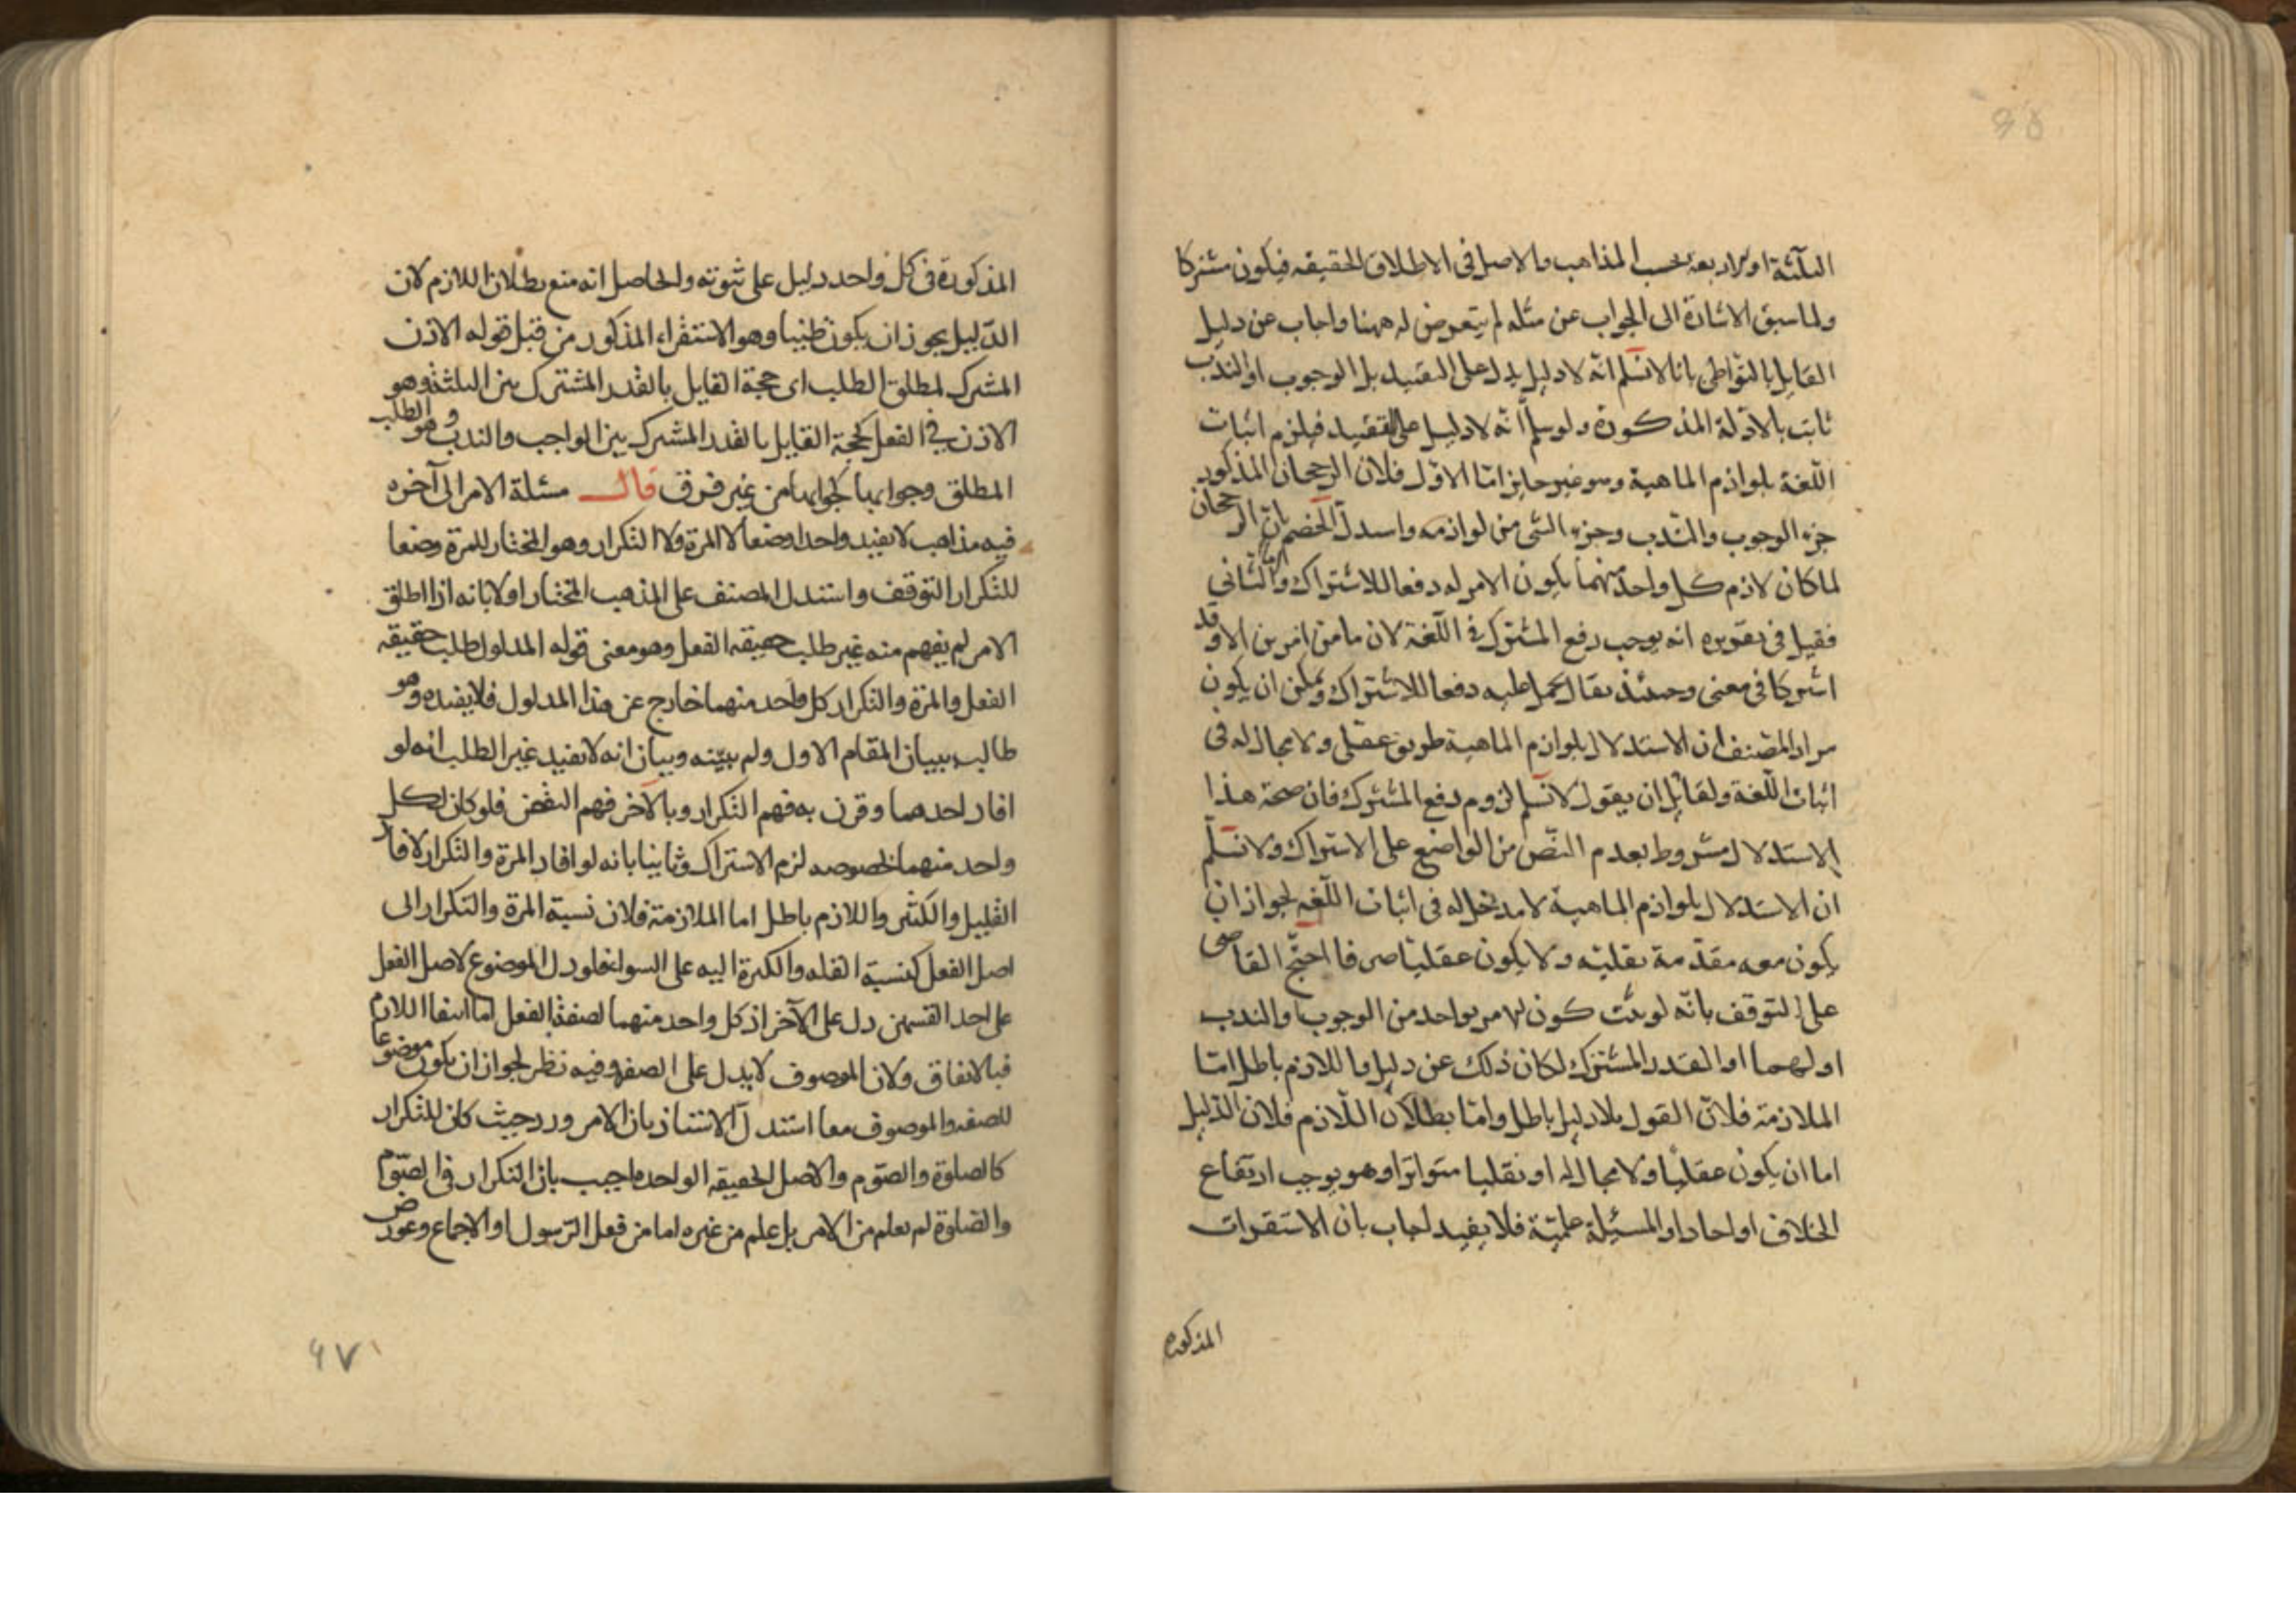 الثلثة او يراد بعد بحسب المذاهب والاصل فى الاطلاق الحقيقه فيكون مشتركا
ولما سبق الاشارة الى الجواب عن مثله لم يتعرض له ههنا واجاب عن دليل
القايل بالتواطى بانا لا نسلم انه لا دليل يدل على التقييد بل الوجوب او الندب
ثابت بالادلة المذكورة ولو سلم انه لا دليل على التقييد فيلزم اثبات
اللغة بلوازم الماهية وهو غير جايز اما الاول فلان الرجحان المذكور
جزء الوجوب والندب وجزء الشى من لوازمه واستدل الخصم بان الرجحان
لما كان لازم كل واحد منهما يكون الامر له دفعا للاشتراك واما الثانى
فقيل فى تقويره انه يوجب رفع المشترك فى اللغة لان ما من امرين الا وقد
اشتركا فى معنى وحينئذ يقال يحمل عليه دفعا للاشتراك ويمكن ان يكون
مراد المصنف ان الاستدلال بلوازم الماهية طريق عقلى ولا مجال له فى
اثبات اللغة ولقائل ان يقول لا نسلم لزوم دفع المشترك فان صحة هذا
الاستدلال مشروط بعدم النص من الواضع على الاشتراك ولا نسلم
ان الاستدلال بلوازم الماهية لا مدخل له فى اثبات اللغه لجواز ان
يكون معه مقدمة نقلية ولا يكون عقليا صرفا احتج القاضى
على التوقف بانه لو ثبت كون الامر بواحد من الوجوب والندب
او لهما او القدر المشترك لكان ذلك عن دليل واللازم باطل اما
الملازمة فلان القول بلا دليل باطل واما بطلان اللازم فلان الدليل
اما ان يكون عقليا ولا مجال له او نقليا متواترا وهو يوجب ارتفاع
الخلاف او احاد او المسئلة علمية فلا يفيد اجاب بان الاستقرات
المذكوره
المذكورة فى كل واحد دليل على ثبوته والحاصل انه منع بطلان اللازم لان
الدليل يجوز ان يكون ظنيا وهو الاستقراء المذكور من قبل قوله الاذن
المشترك لمطلق الطلب اى حجة القايل بالقدر المشترك بين الثلثة وهو
الاذن فى الفعل كحجة القايل بالقدر المشترك بين الواجب والندب وهو الطلب
المطلق وجوابها كجوابها من غير فرق قال مسئلة الامر الى آخره
فيه مذاهب لا يفيد واحدا وضعا لا المرة ولا التكرار وهو المختار للمرة وضعا
للتكرار التوقف واستدل المصنف على المذهب المختار اولا بانه اذا اطلق
الامر لم يفهم منه غير طلب حقيقه الفعل وهو معنى قوله المدلول طلب حقيقه
الفعل والمرة والتكرار كل واحد منهما خارج عن هذا المدلول فلا يفيده وهو
طالب ببيان المقام الاول ولم يبينه وبيان انه لا يفيد غير الطلب انه لو
افاد احدهما وقرن به فهم التكرار وبالآخر فهم النقض فلو كان لكل
واحد منهما لخصوصه لزم الاشتراك وثانيا بانه لو افاد المرة والتكرار لافاد
القليل والكثير واللازم باطل اما الملازمة فلان نسبة المرة والتكرار الى
اصل الفعل كنسبة القله والكثرة اليه على السواء فلو دل الموضوع لاصل الفعل
على احد القسمين دل على الآخر اذ كل واحد منهما لصفة الفعل اما انتفا اللازم
فبالاتفاق ولان الموصوف لا يدل على الصفه وفيه نظر لجواز ان يكون موضوعا
للصفه والموصوف معا استدل الاستاذ بان الامر ورد حيث كان للتكرار
كالصلوة والصوم والاصل الحقيقه الواحده واجيب بان التكرار فى الصوم
والصلوة لم يعلم من الامر بل علم من غيره اما من فعل الرسول او الاجماع وعورض